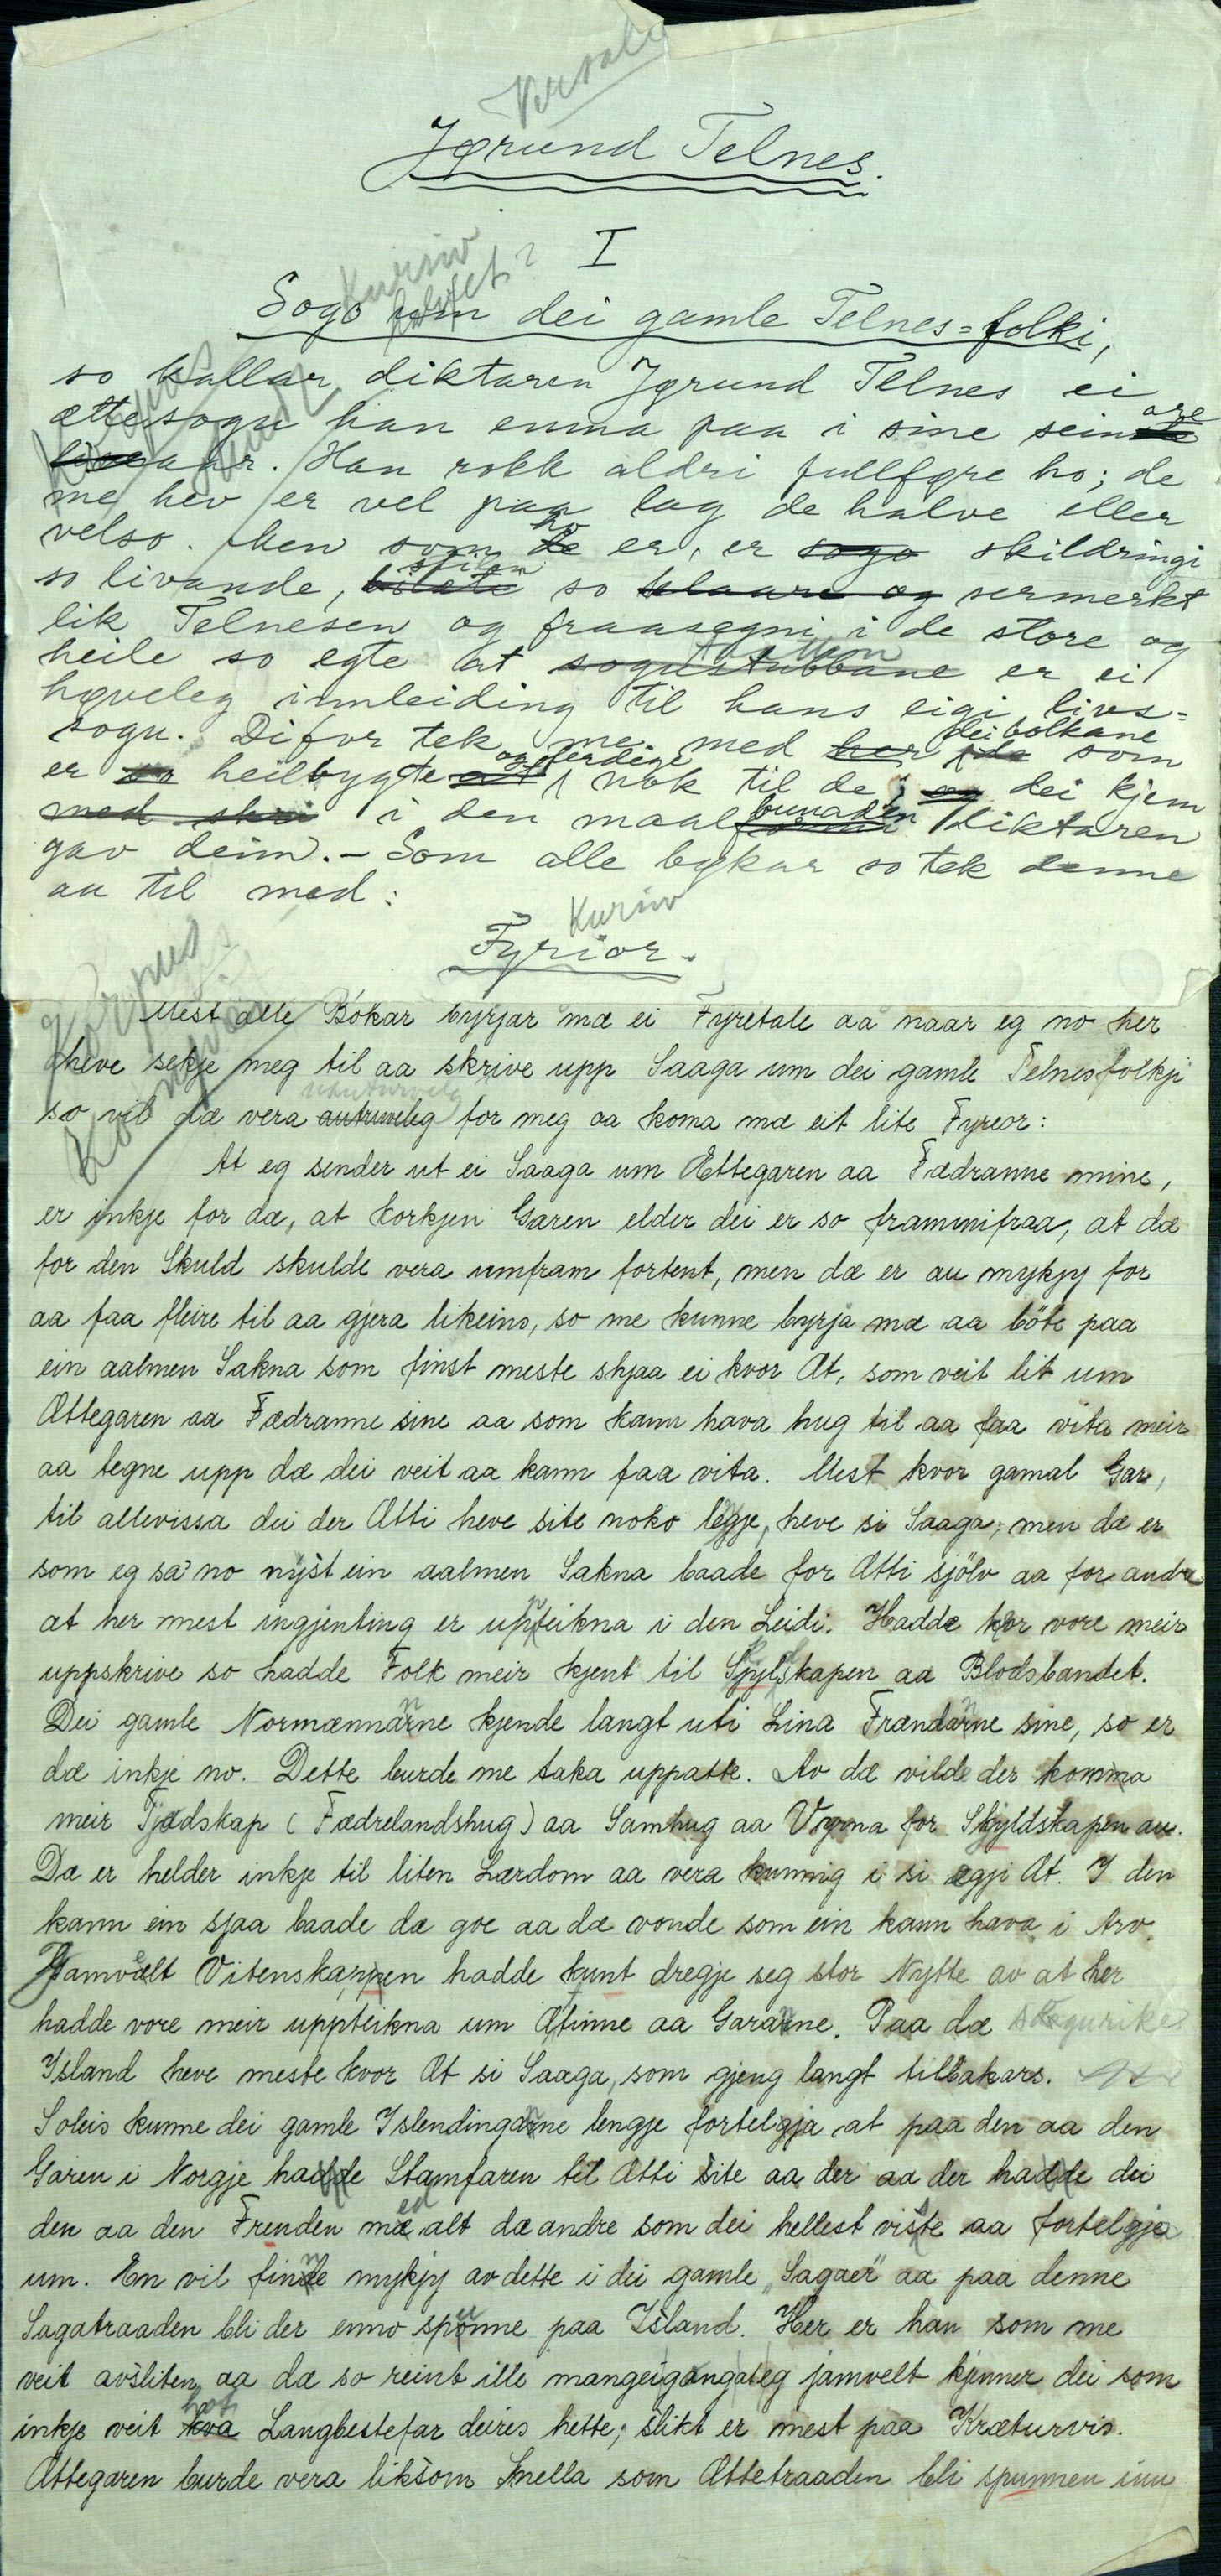 Versale
Jørund Telnes.
I
Kursiv
Sogo um dei gamle Telnes=folki,
so kallar diktaren Jørund Telnes ei
ættesogu han emna paa i sine seinare
aar. Han rokk aldri fullføre ho; de
me hev er vel paa lag de halve eller
velso. Men som ho er, er skildringi
so livande, stilen so sermerkt
lik Telnesen og fraasegni i de store og
heile so egte at er ei
høveleg innleiding til hans eigi livs=
sogu. Difor tek me med dei bolkane som
er heilbygte og ferdige nok til de; dei kjem
i den maalbunaden diktaren
gav deim. – Som alle bøkar so tek denne
au til med:
Kursiv
Fyrior.
Korpus
Mest alle Bókar byrjar mæ ei Fyretale aa naar eg no her
heve sekje meg til aa skrive upp Saaga um dei gamle Telnesfolkji
so vil dæ vera naturveleg for meg aa koma mæ eit lite Fyreor:
At eg sender ut ei Saaga um Ættegaren aa Fædranne mine,
er inkje for dæ, at korkjen Garen elder dei er so frammifraa, at dæ
for den Skuld skulde vera umfram fortent, men dæ er au mykjy for
aa faa fleire til aa gjera likeins, so me kunne byrja mæ aa böte paa
ein aalmen Sakna som finst meste shjaa ei kvor Æt, som veit lit um
Ættegaren aa Fædranne sine aa som kann hava hug til aa faa vita meir
aa tegne upp dæ dei veit aa kann faa vita. Mest kvor gamal Gar,
til allevissa dei der Ætti heve site noko lengje, heve si Saaga, men dæ er
som eg sa' no nyst ein aalmen Sakna baade for Ætti sjölv aa for andre
at her mest ingjenting er uppteikna i den Leidi. Hadde her vore meir
uppskrive so hadde Folk meir kjent til Skyldskapen aa Blodsbandet.
Dei gamle Normænnanne kjende langt uti Lina Frændanne sine, so er
dæ inkje no. Dette burde me taka uppatte. Av dæ vilde der komma
meir Tjodskap (Fædrelandshug) aa Samhug aa Vyrna for Skyldskapen au.
Dæ er helder inkje til liten Lærdom aa vera kunnig i si ægji Æt. I den
kann ein sjaa baade dæ goe aa dæ vonde som ein kann hava i Arv.
Jamvælt Vitenskappen hadde kunt dregje seg stor Nytte av at her
hadde vore meir uppteikna um Ætinne aa Garanne. Paa dæ sogurike
Island heve meste kvor Æt si Saaga, som gjeng langt tilbakars.
Soleis kunne dei gamle Islendinganne lengje fortelgja at paa den aa den
Garen i Norgje hadde Stamfaren til Ætti site aa der aa der hadde dei
den aa den Frenden med alt dæ andre som dei hellest viste aa fortelgje
um. En vil finne mykjy av dette i dei gamle „Sagaer” aa paa denne
Sagatraaden bli der enno spunne paa Island. Her er han som me
veit avsliten, aa dæ so reint ille mangeigongateg jamvelt kjenner dei som
inkje veit hot Langbestefar deires hette; slikt er mest paa Kræturvis.
Ættegaren burde vera liksom Snella som Ættetraaden bli spunnen inn